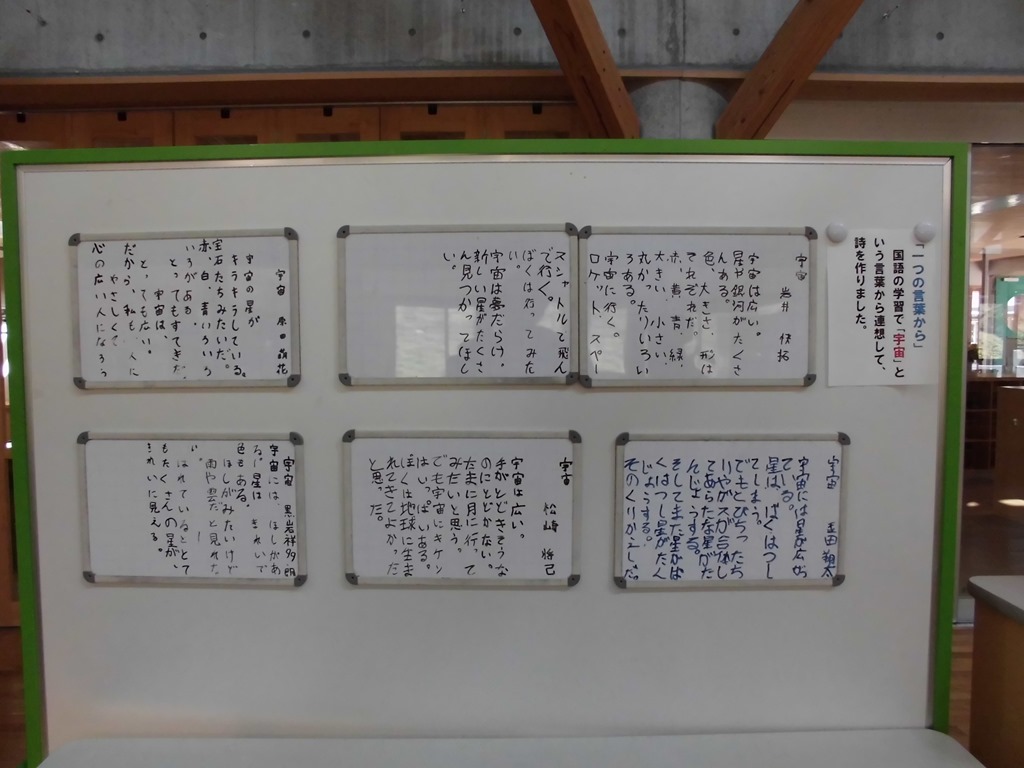 「一つの言葉から」
国語の学習で「宇宙」と
いう言葉から連想して、
詩を作りました。
宇宙
岩井
宇宙は広い。
星や銀河がたくさ
んある。
色、大きさ、形は
それぞれだ。
赤、黄、青、緑、
大きい、小さい、
丸かったりいろい
ろある。
宇宙に行く。
ロケット、スペー
スシャトルで飛ん
で行く。
ぼくは行ってみた
い。
宇宙は夢だらけ。
新しい星がたくさ
ん見つかってほし
い。
宇宙 原田
宇宙の星が
キラキラしている。
宝石たちみたいだ。
赤、白、青いろいろ
いろがある
とってもすてきだ。
宇宙は、
とっても広い。
やさしくて
だから、私も、人に
心の広い人になろう
宇宙 翔太
宇宙には星が広がっ
ている。
星は、ばくはつし
てしまう。
でもとびちったち
りやガスが合体し
てあらたな星がた
んじょうする。
そしてまた星がば
くはつし星がたん
じょうする。
そのくりかえしだ。
宇宙
松崎 将己
宇宙は広い。
手がとどきそうな
のにとどかない。
たまに月に行って
みたいと思う。
でも宇宙にキケン
はいっぱいある。
ぼくは地球に生ま
れてきてよかった
と思った。
宇宙 黒岩祥多朗
宇宙には、ほしがあ
る。星は、きれいで
色もある。
ほしがみたいけど
雨や雲だと見れな
い。
はれているととて
もたくさんの星が、
きれいに見える。